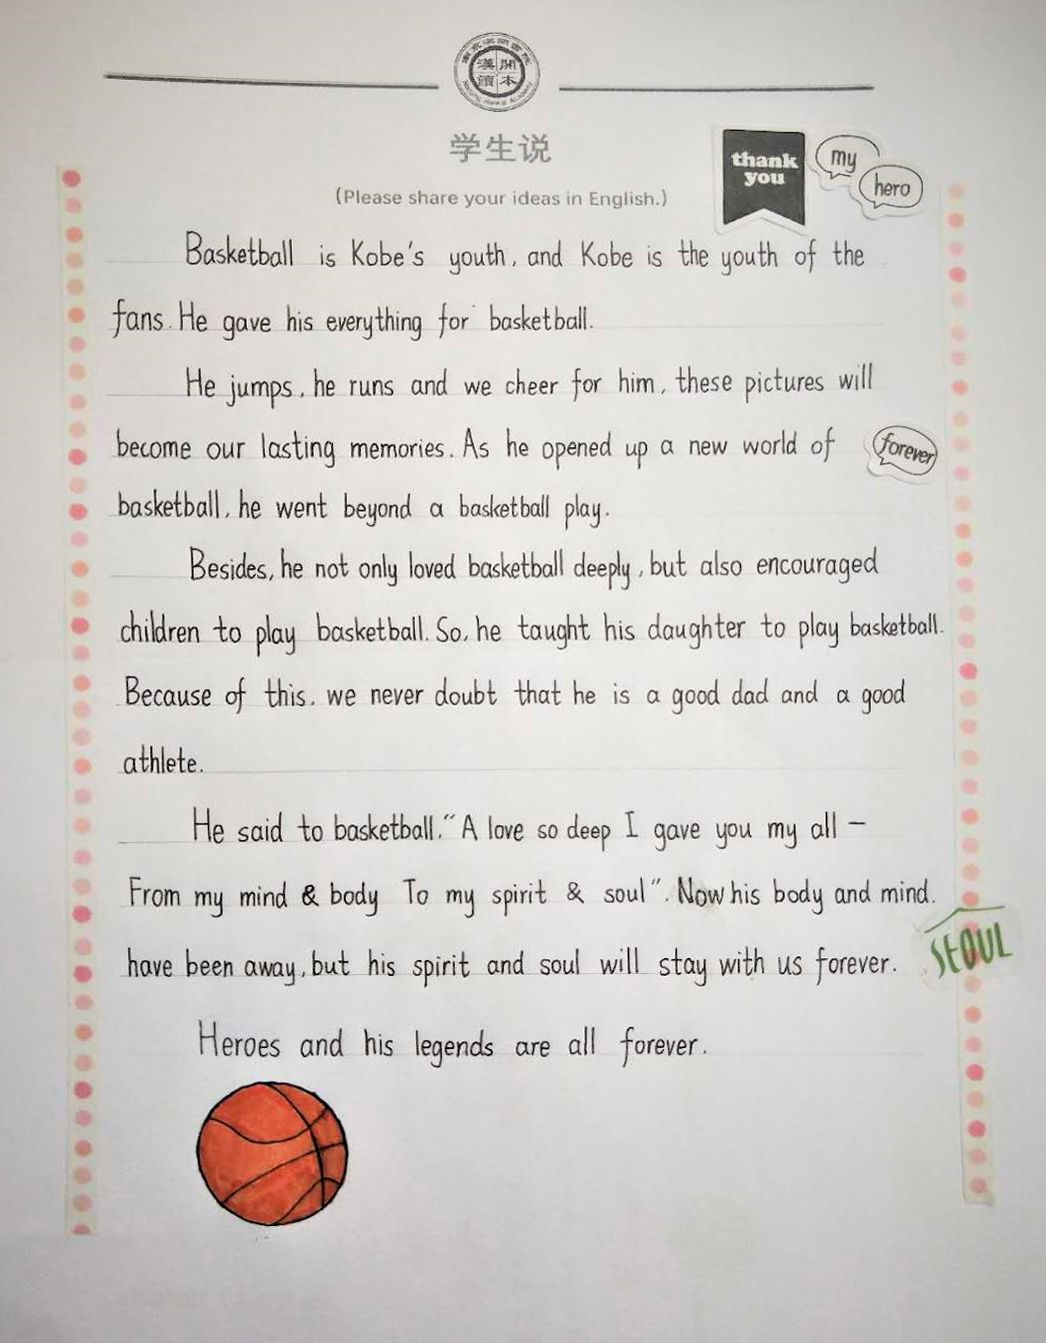 漢開
讀本
学生说
thank
you
my
hero
(Please share your ideas in English.)
Basketball is Kobe's youth, and Kobe is the youth of the
fans. He gave his everything for basketball.
He jumps, he runs and we cheer for him, these pictures will
become our lasting memories. As he opened up a new world of
forever
basketball, he went beyond a basketball play.
Besides, he not only loved basketball deeply, but also encouraged
children to play basketball. So, he taught his daughter to play basketball.
Because of this, we never doubt that he is a good dad and a good
athlete.
He said to basketball, “A love so deep I gave you my all —
From my mind & body To my spirit & soul”. Now his body and mind.
have been away, but his spirit and soul will stay with us forever.
SEOUL
Heroes and his legends are all forever.